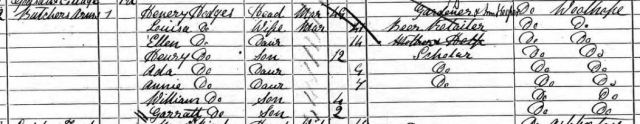 Butchers Arms 1 Henery Hodges Head Mar 49 Gardener & Inn Keeper Do Woolhope
Louisa Do Wife Mar 41 Beer Retailer Do Do
Ellen Do Daur 14 Mothers Help Do Do
Henry Do Son 12 Scholar Do Do
Ada Do Daur 9 Do Do Do
Annie Do Daur 7 Do Do Do
William Do Son 4 Do Do
Garratt Do Son 2 Do Do